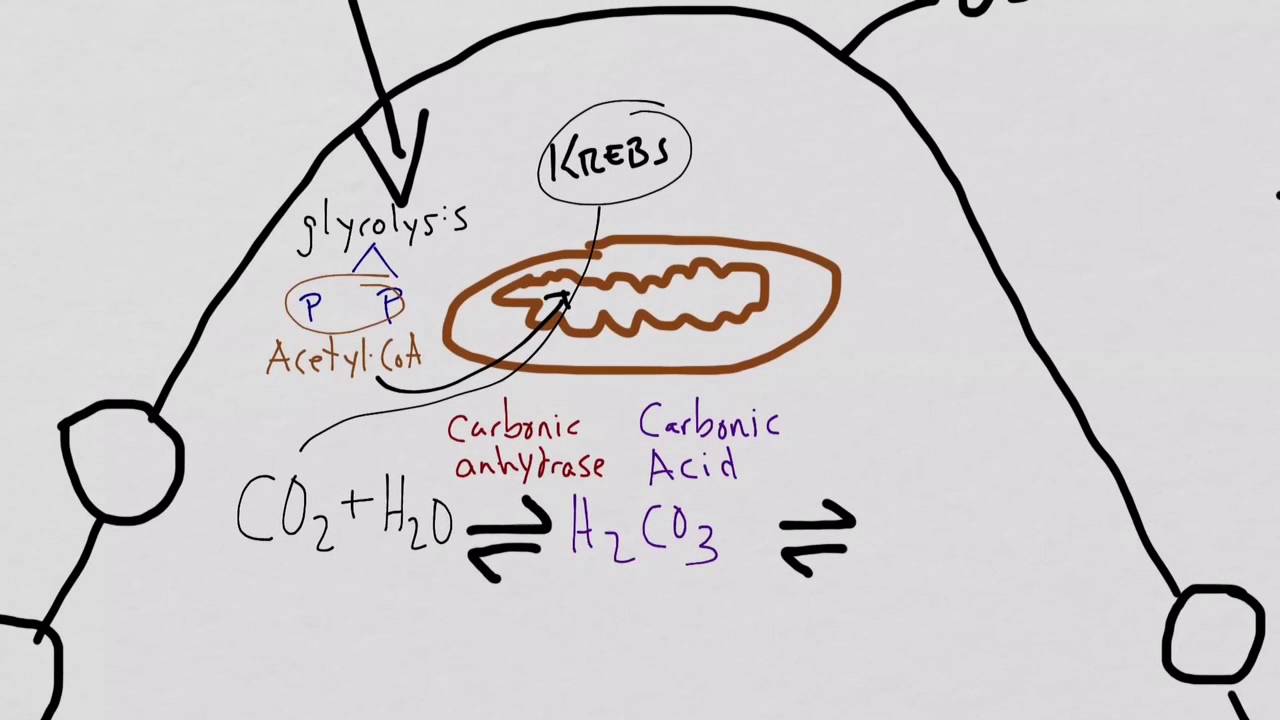 KREBS
glycolysis
P P
Acetyl·CoA
Carbonic
anhytrase
Carbonic
Acid
CO₂+H₂O ⇌ H₂CO₃ ⇌